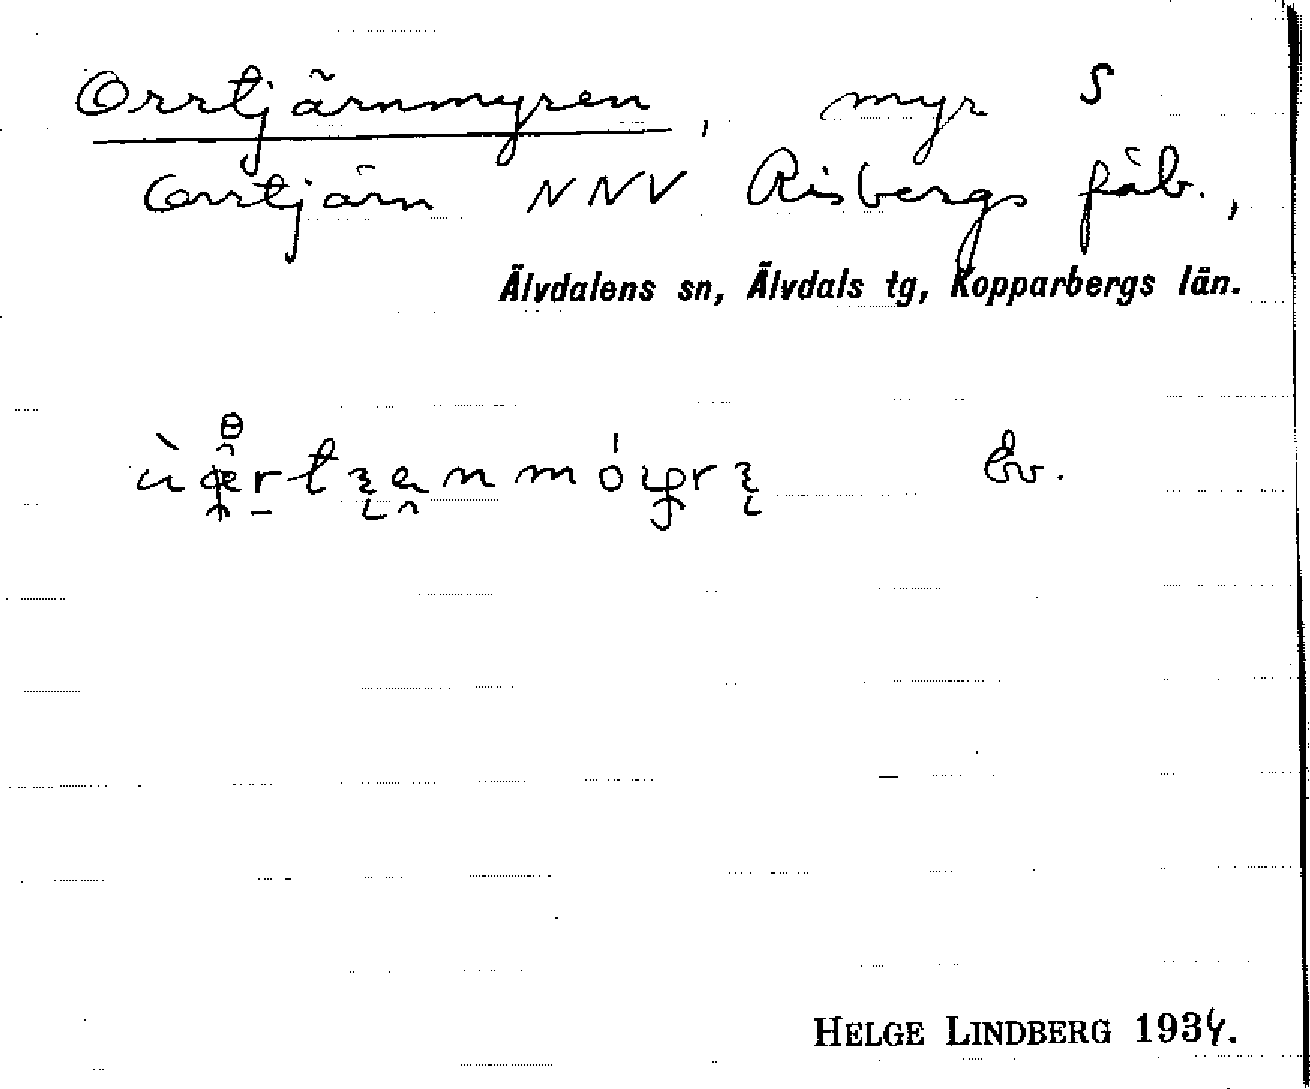 Orrtjärnmyren, myr S
Orrtjärn NNV Risbergs fäb.,
Älvdalens sn, Älvdals tg, Kopparbergs län.
Ev.
HELGE LINDBERG 1934.